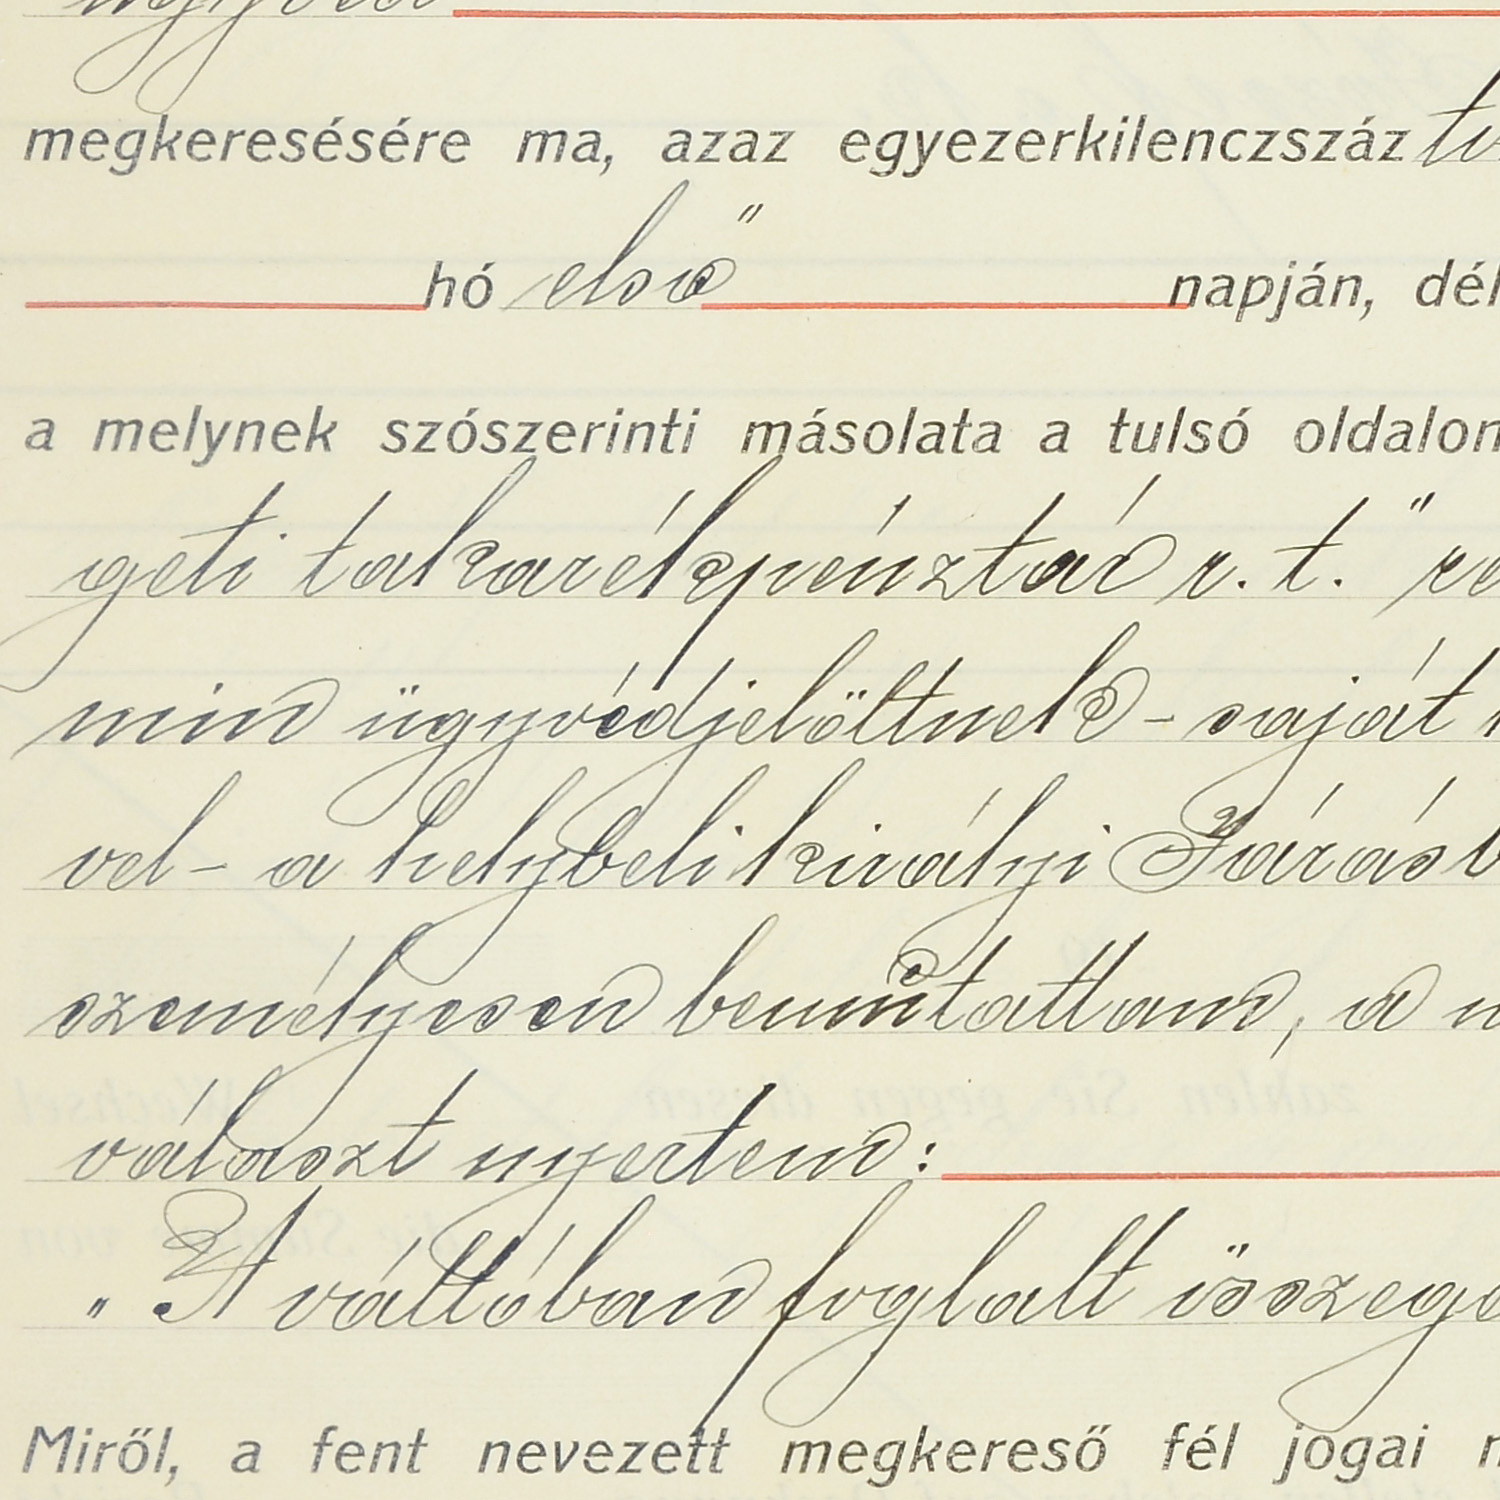 megkeresésére ma, azaz egyezerkilenczszáz
hó első napján, dél
a melynek szószerinti másolata a tulsó oldalon
geti takarékpénztár r. t." re
min ügyvédjelöltnek - saját
vel - a helybeli királyi Járásb
személyesen bemutattam, a
választ nyertem:
„A váltóban foglalt összege
Miről, a fent nevezett megkereső fél jogai
zahlen Sie gegen diesen Wechsel